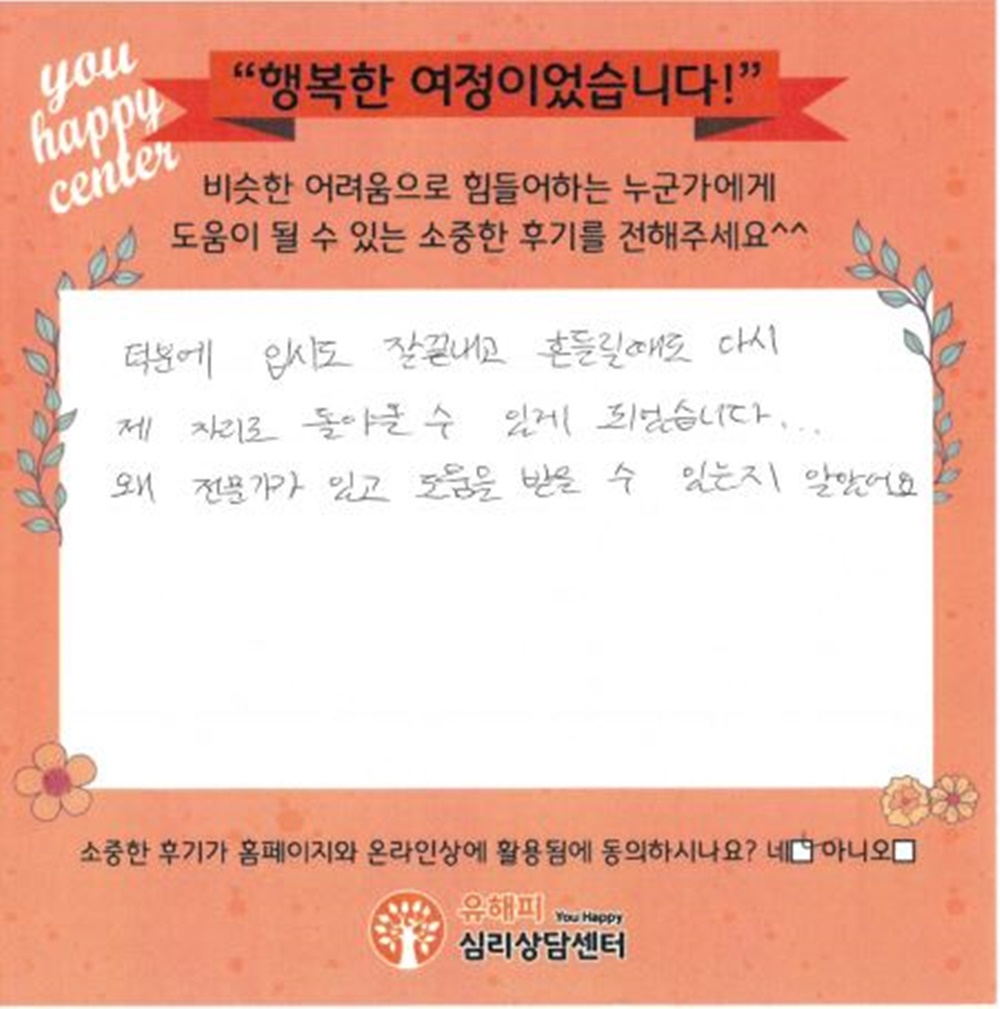 you
happy
center
“행복한 여정이었습니다!”
비슷한 어려움으로 힘들어하는 누군가에게
도움이 될 수 있는 소중한 후기를 전해주세요^^
덕분에 입시도 잘끝내고 흔들릴때도 다시
제 자리로 돌아올 수 있게 되었습니다...
왜 전문가가 있고 도움을 받을 수 있는지 알았어요
소중한 후기가 홈페이지와 온라인상에 활용됨에 동의하시나요? 네 아니오
유해피 You Happy
심리상담센터